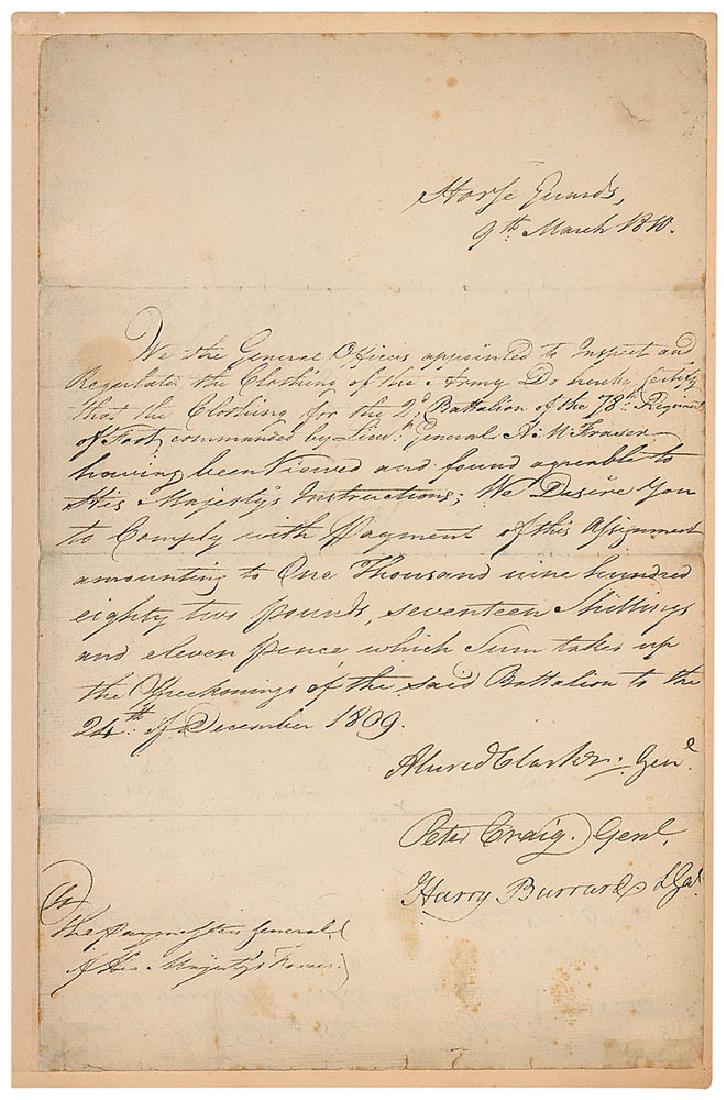 Horse Guards,
9th March 1810.
We the General Officers appointed to Inspect and
Regulate the Clothing of the Army Do hereby Certify
that the Clothing for the 2d Battalion of the 78th Regiment
of Foot, commanded by Lieut. General A: M: Fraser
having been Viewed and found agreable to
His Majesty's Instructions; We Desire You
to Comply with Payment of this Assignment
amounting to One Thousand nine hundred
eighty two pounds, seventeen Shillings
and eleven pence which Sum takes up
the Offreckonings of the said Battalion to the
24th of December 1809.
Alured Clarke, Genl
Peter Craig. Genl.
Harry Burrard LGl
To
The Paymaster General
of His Majesty's Forces.